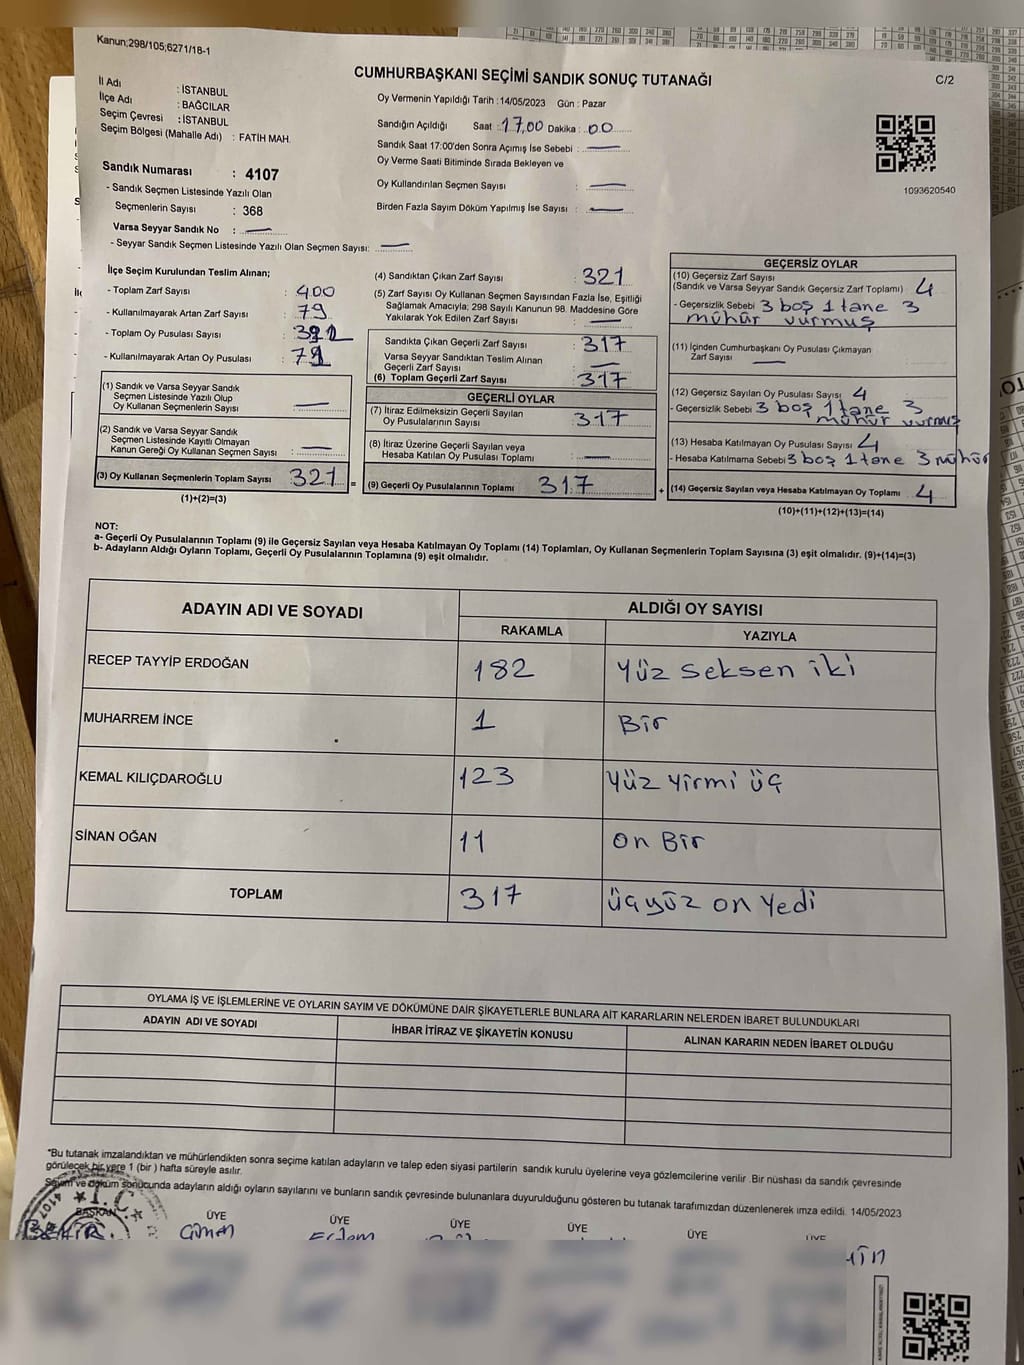 Kanun;298/105;6271/18-1
CUMHURBAŞKANI SEÇİMİ SANDIK SONUÇ TUTANAĞI
C/2
İl Adı : İSTANBUL
İlçe Adı : BAĞCILAR
Seçim Çevresi : İSTANBUL
Seçim Bölgesi (Mahalle Adı) : FATİH MAH.
Oy Vermenin Yapıldığı Tarih :14/05/2023 Gün : Pazar
Sandığın Açıldığı Saat : 17,00 Dakika : 00
Sandık Saat 17:00'den Sonra Açımış İse Sebebi : —
Oy Verme Saati Bitiminde Sırada Bekleyen ve
Oy Kullandırılan Seçmen Sayısı : —
Birden Fazla Sayım Döküm Yapılmış İse Sayısı : —
1093620540
Sandık Numarası : 4107
- Sandık Seçmen Listesinde Yazılı Olan
Seçmenlerin Sayısı : 368
Varsa Seyyar Sandık No : —
- Seyyar Sandık Seçmen Listesinde Yazılı Olan Seçmen Sayısı: —
İlçe Seçim Kurulundan Teslim Alınan;
- Toplam Zarf Sayısı : 400
- Kullanılmayarak Artan Zarf Sayısı : 79
- Toplam Oy Pusulası Sayısı :
- Kullanılmayarak Artan Oy Pusulası :
(1) Sandık ve Varsa Seyyar Sandık
Seçmen Listesinde Yazılı Olup
Oy Kullanan Seçmenlerin Sayısı : —
(2) Sandık ve Varsa Seyyar Sandık
Seçmen Listesinde Kayıtlı Olmayan
Kanun Gereği Oy Kullanan Seçmen Sayısı : —
(3) Oy Kullanan Seçmenlerin Toplam Sayısı 321 =
(1)+(2)=(3)
(4) Sandıktan Çıkan Zarf Sayısı : 321
(5) Zarf Sayısı Oy Kullanan Seçmen Sayısından Fazla İse, Eşitliği
Sağlamak Amacıyla; 298 Sayılı Kanunun 98. Maddesine Göre
Yakılarak Yok Edilen Zarf Sayısı : —
Sandıkta Çıkan Geçerli Zarf Sayısı : 317
Varsa Seyyar Sandıktan Teslim Alınan
Geçerli Zarf Sayısı : —
(6) Toplam Geçerli Zarf Sayısı : 317
GEÇERLİ OYLAR
(7) İtiraz Edilmeksizin Geçerli Sayılan
Oy Pusulalarının Sayısı : 317
(8) İtiraz Üzerine Geçerli Sayılan veya
Hesaba Katılan Oy Pusulası Toplamı : —
(9) Geçerli Oy Pusulalarının Toplamı 317 +
GEÇERSİZ OYLAR
(10) Geçersiz Zarf Sayısı
(Sandık ve Varsa Seyyar Sandık Geçersiz Zarf Toplamı) 4
- Geçersizlik Sebebi 3 boş 1 tane 3
mühür vurmuş
(11) İçinden Cumhurbaşkanı Oy Pusulası Çıkmayan
Zarf Sayısı —
(12) Geçersiz Sayılan Oy Pusulası Sayısı 4
- Geçersizlik Sebebi 3 boş 1 tane 3
mühür vurmuş
(13) Hesaba Katılmayan Oy Pusulası Sayısı 4
- Hesaba Katılmama Sebebi 3 boş 1 tane 3 mühür
(14) Geçersiz Sayılan veya Hesaba Katılmayan Oy Toplamı 4
(10)+(11)+(12)+(13)=(14)
NOT:
a- Geçerli Oy Pusulalarının Toplamı (9) ile Geçersiz Sayılan veya Hesaba Katılmayan Oy Toplamı (14) Toplamları, Oy Kullanan Seçmenlerin Toplam Sayısına (3) eşit olmalıdır. (9)+(14)=(3)
b- Adayların Aldığı Oyların Toplamı, Geçerli Oy Pusulalarının Toplamına (9) eşit olmalıdır.
ADAYIN ADI VE SOYADI ALDIĞI OY SAYISI
RAKAMLA YAZIYLA
RECEP TAYYİP ERDOĞAN 182 Yüz seksen iki
MUHARREM İNCE 1 Bir
KEMAL KILIÇDAROĞLU 123 Yüz yirmi üç
SİNAN OĞAN 11 on Bir
TOPLAM 317 üçyüz on yedi
OYLAMA İŞ VE İŞLEMLERİNE VE OYLARIN SAYIM VE DÖKÜMÜNE DAİR ŞİKAYETLERLE BUNLARA AİT KARARLARIN NELERDEN İBARET BULUNDUKLARI
ADAYIN ADI VE SOYADI İHBAR İTİRAZ VE ŞİKAYETİN KONUSU ALINAN KARARIN NEDEN İBARET OLDUĞU
*Bu tutanak imzalandıktan ve mühürlendikten sonra seçime katılan adayların ve talep eden siyasi partilerin sandık kurulu üyelerine veya gözlemcilerine verilir .Bir nüshası da sandık çevresinde
görülecek bir yere 1 (bir ) hafta süreyle asılır.
Sayım ve döküm sonucunda adayların aldığı oyların sayılarını ve bunların sandık çevresinde bulunanlara duyurulduğunu gösteren bu tutanak tarafımızdan düzenlenerek imza edildi. 14/05/2023
4107 T.C.
BAŞKAN ÜYE ÜYE ÜYE ÜYE ÜYE ÜYE